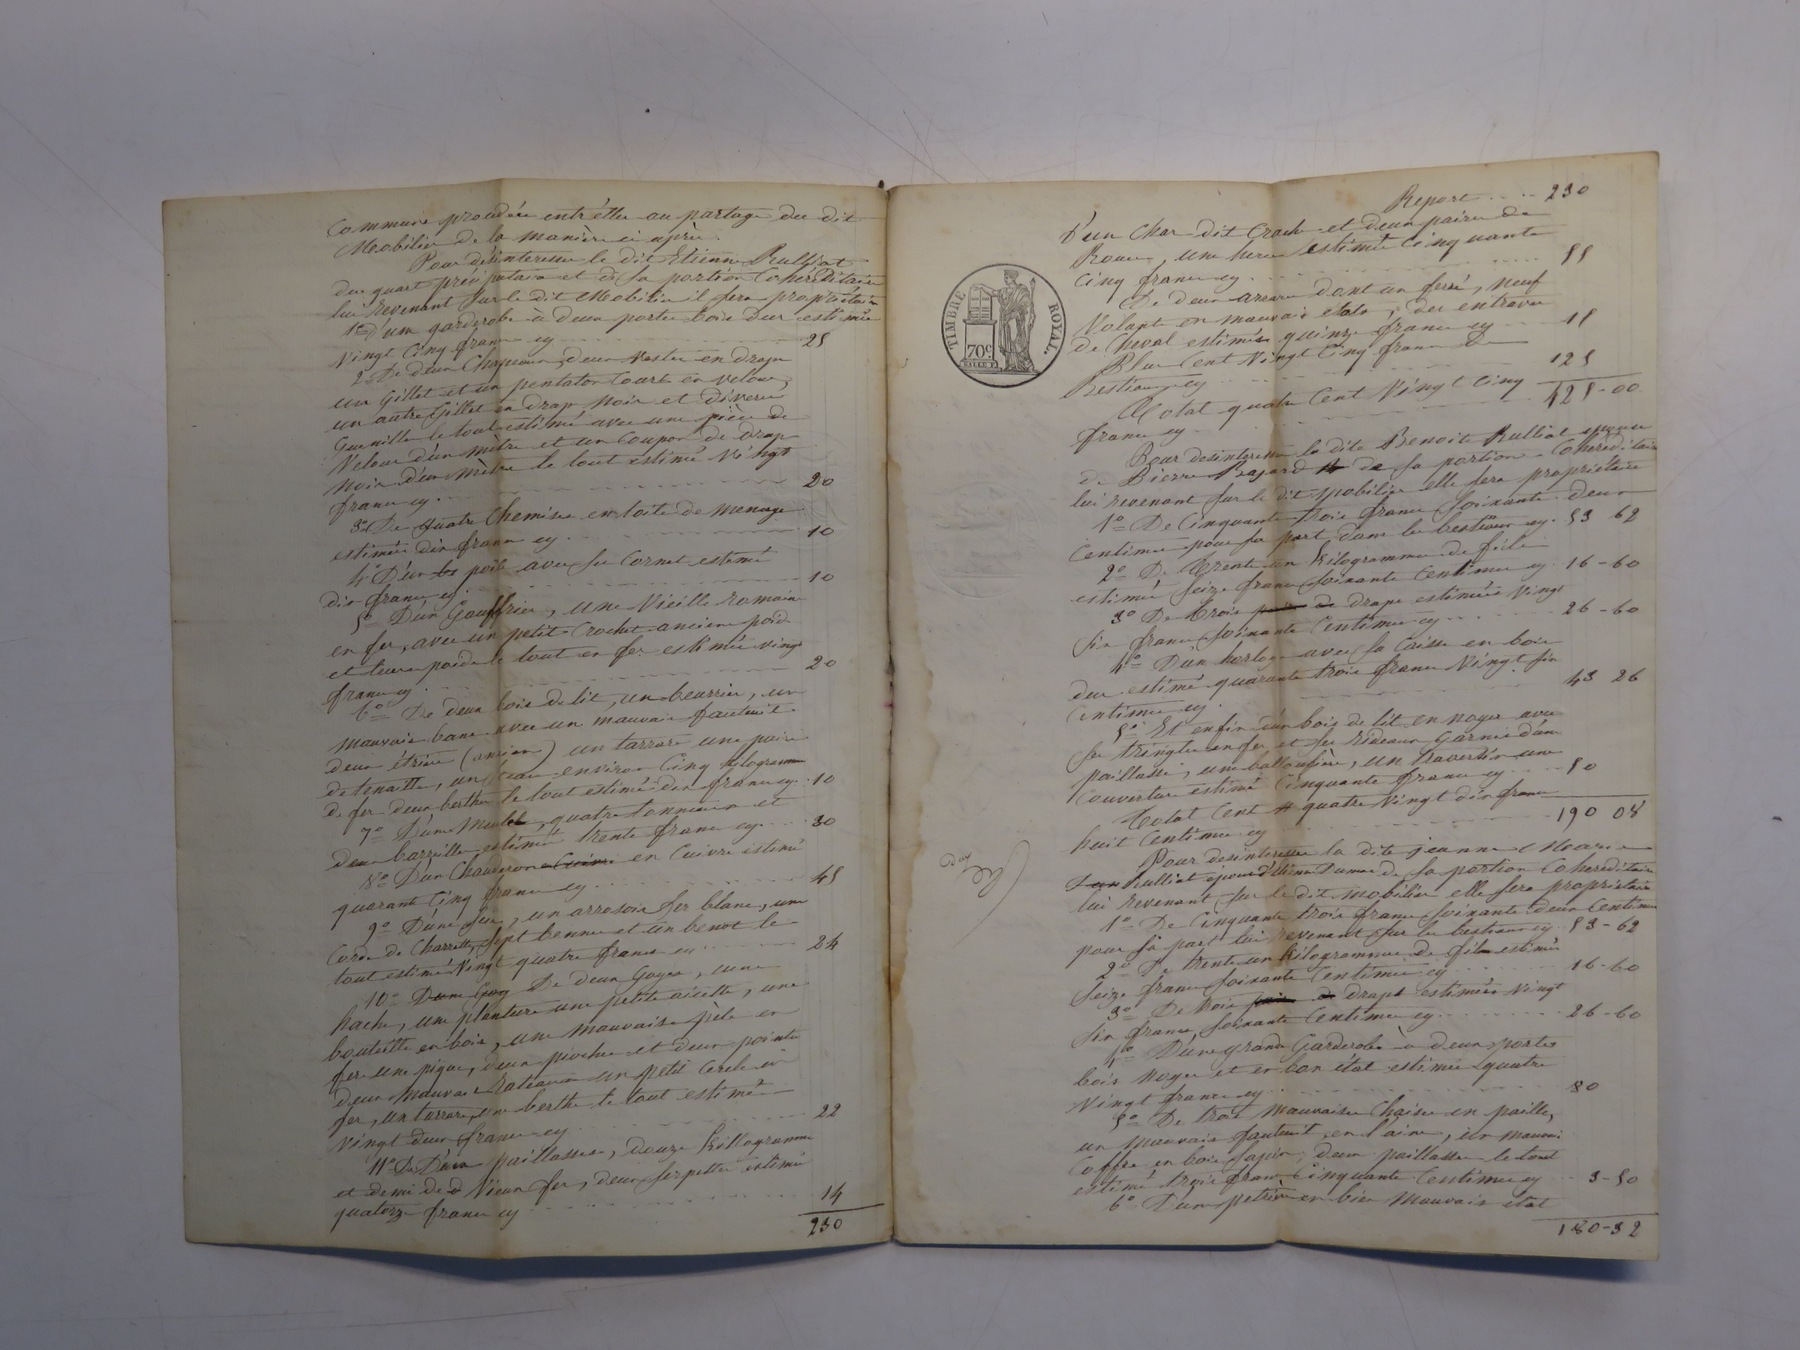 Commune proceder entr'elles au partage du dit
Mobilier de la manière ci après.
Pour desinteresser le dit Etienne Rulliat
du quart préciputaire et de sa portion Cohéréditaire
lui Revenant sur le dit Mobilier il sera propriétaire
1º D'um garderobe à deux portes bois dur estimée
Vingt Cinq francs cy 25
2º De deux Chapeaux, deux Vestes en drap
un Gillet et un pentalon Court en velour,
un autre Gillet en drap Noir et diverses
Guenilles le tout estimé avec une pièce de
Velour d'un mètre et un Coupon de drap
Noir d'un Mètre le tout estimé Vingt
francs cy 20
3º De quatre Chemises en toile de menage
estimées dix francs cy 10
4º D'un poile avec ses Cornets estimé
dix francs cy 10
5º D'un Gauffrier, une Vieille romaine
en fer, avec un petit Crochet ancien poid
et leurs poids le tout en fer estimé vingt
francs cy 20
6º De deux bois de lit, un beurrier, un
mauvais banc avec un mauvais fauteuil
deux étriers (anciens) un tarrare une paire
de tenaille, un seau environ Cinq kilogramme
de fer deux berthes le tout estimé dix francs cy 10
7º D'une Meule, quatre tonneaux et
deux barrilles estimé trente francs cy 30
8º D'un Chauderon en Cuivre estimé
quarante Cinq francs cy 45
9º D'une scie, un arrosoir fer blanc, une
Corde de Charrette, sept bennes et un benot le
tout estimé Vingt quatre francs cy 24
10º De deux Goyes, une
hache, une planture une petite aisette, une
bouteille en bois, une mauvaise pèle en
fer une pique, deux pioches et deux pointes
deux Mauvais Rateaux un petit Cercle en
fer, un tarrare, une berthe le tout estimé
Vingt deux francs cy 22
11º De paillasses, douze Killogramme
et demi de Vieux fer, deux serpettes estimées
quatorze francs cy 14
230
Report 230
D'un Char dit Croche et d'une paire de
Roues, une herse estimée Cinquante
Cinq francs cy 55
De deux araires dont un ferré, neuf
Volants en mauvais état, des entraves
de Cheval estimés quinze francs cy 15
Plus Cent Vingt Cinq francs de
Bestiaux cy 125
Total quatre Cent Vingt Cinq
francs cy 425-00
TIMBRE ROYAL.
70c
Pour desinteresser la dite Benoite Rulliat epouse
de Pierre de sa portion Cohéréditaire
lui revenant sur le dit Mobilier elle sera propriétaire
1º De Cinquante trois francs soixante deux
Centimes pour sa part dans les bestiaux cy 53 62
2º De trente un Kilogramme de file
estimé seize francs soixante Centimes cy 16-60
3º De trois draps estimées Vingt
six francs soixante Centimes cy 26-60
4º D'un horloge avec sa Caisse en bois
dur estimé quarante trois francs Vingt six
Centimes cy 43 26
5º Et enfin d'un bois de lit en noyer avec
ses tringles en fer et ses Rideaux Garnis d'une
paillasse, une balloufière, un traversin une
Couverture estimé Cinquante francs cy 50
Total Cent quatre Vingt dix francs
huit Centimes cy 190 08
Pour desinteresser la dite jeanne Marie
Rulliat epouse d'Etienne Dumas de sa portion Cohéréditaire
lui Revenant sur le dit Mobilier elle sera propriétaire
1º De Cinquante trois francs soixante deux Centimes
pour sa part lui revenant sur les bestiaux cy 53-62
2º De trente un Kilogramme de file estimés
seize francs soixante Centimes cy 16-60
3º De trois draps estimées Vingt
six francs, soixante Centimes cy 26-60
4º D'une grande Garderobe à deux portes
bois Noyer et en bon état estimée quatre
Vingt francs cy 80
5º De trois mauvaises Chaises en paille,
un Mauvais fauteuil, un mauvais
Coffre en bois sapin, deux paillasses le tout
estimé trois francs Cinquante Centimes cy 3-50
6º D'un petrin en bien Mauvais etat
180-32